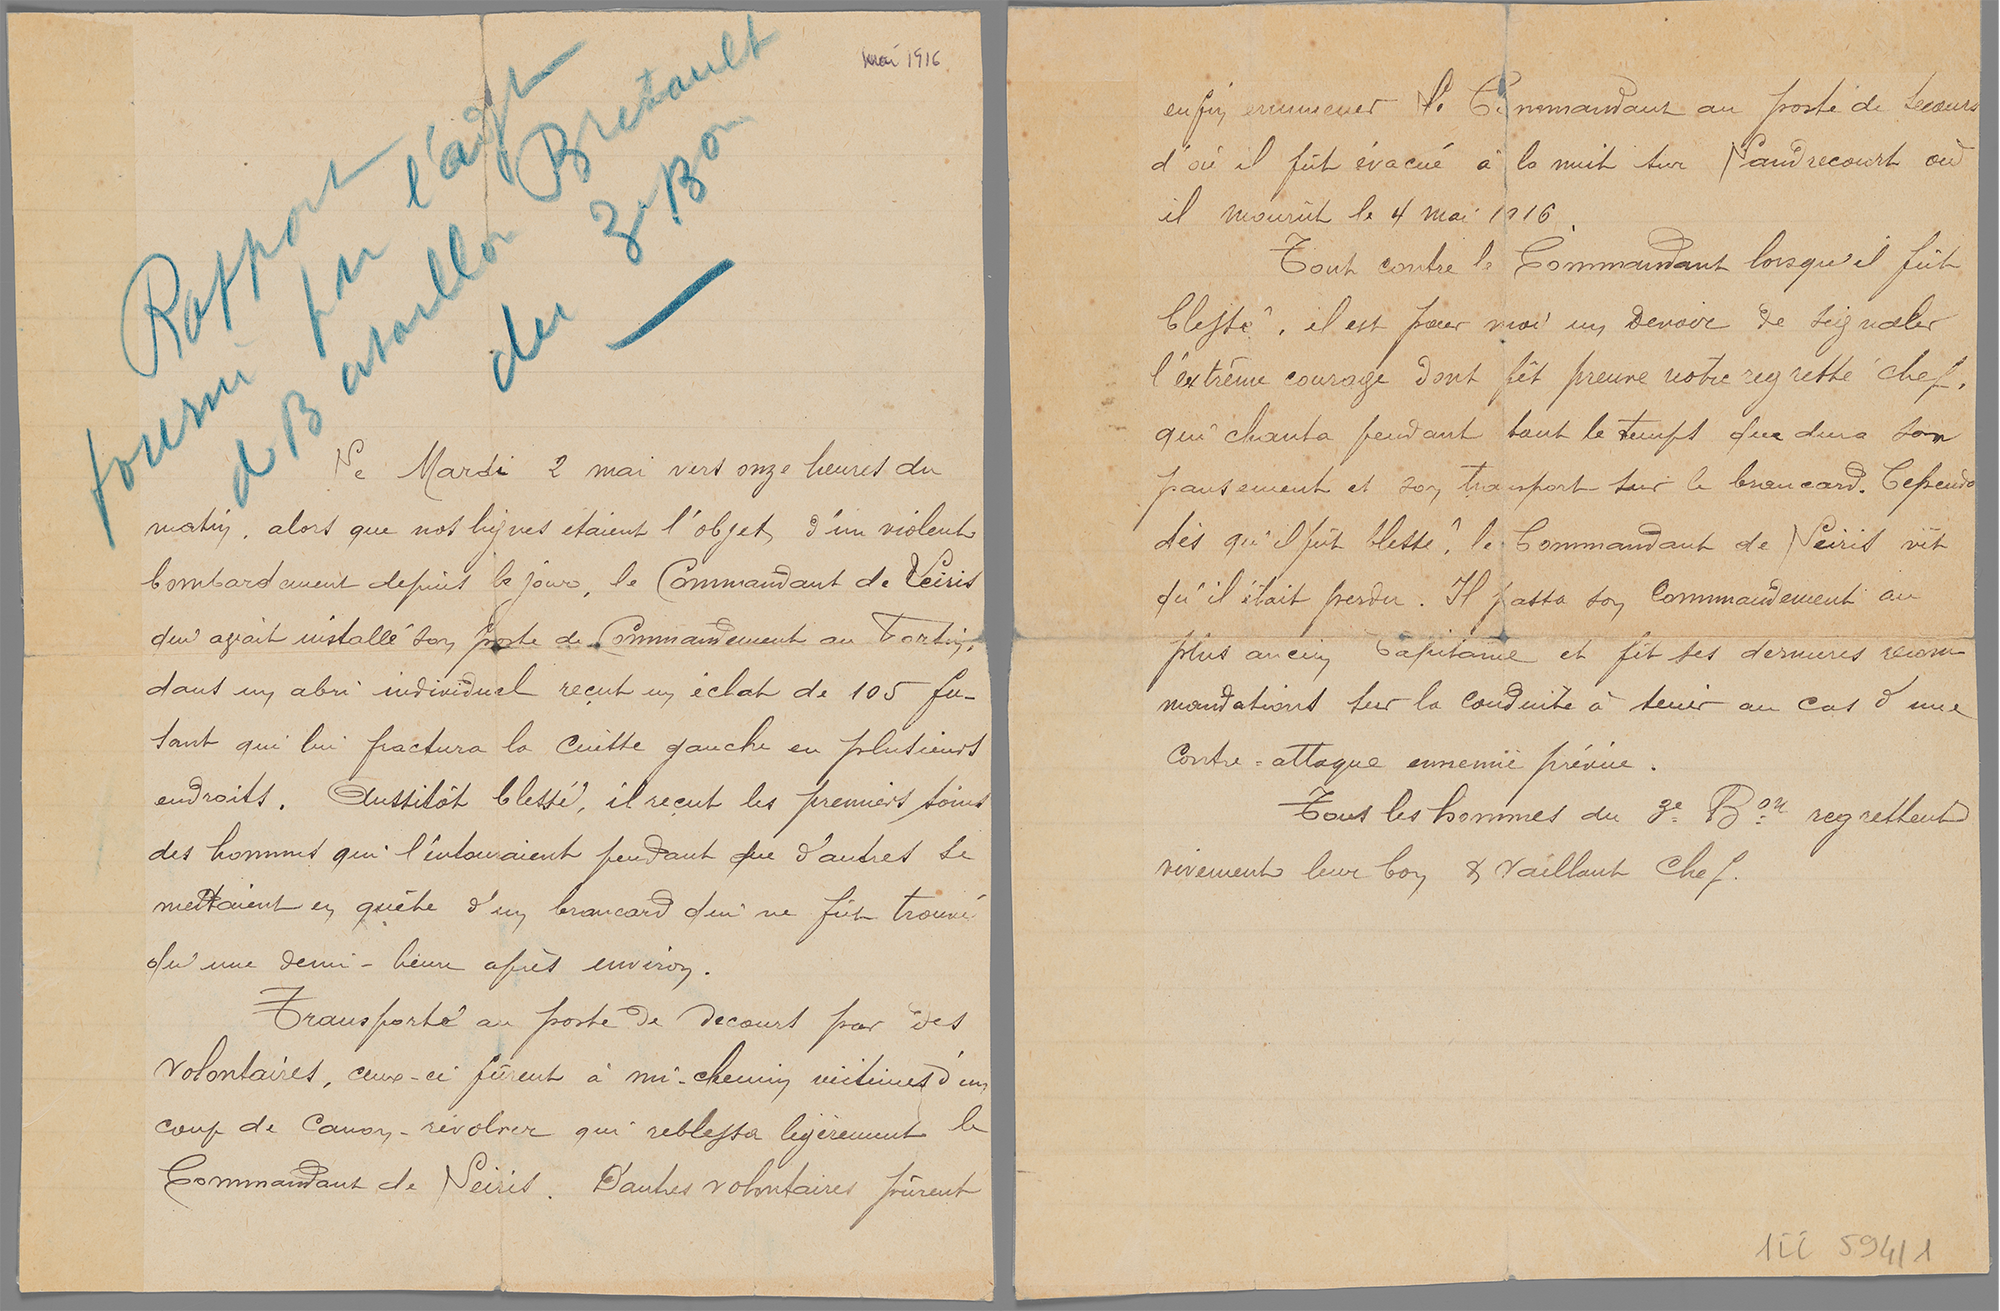 mai 1916
Rapport
fourni par l'adjt
de Bataillon Bretault
du 3e Bon
Le Mardi 2 mai vers onze heures du
matin, alors que nos lignes étaient l'objet d'un violent
bombardement depuis le jour, le Commandant de Seiris
qui avait installé son poste de Commandement au Fortin,
dans un abri individuel reçut un éclat de 105 fu-
sant qui lui fractura la cuisse gauche en plusieurs
endroits. Aussitôt blessé, il reçut les premiers soins
des hommes qui l'entouraient pendant que d'autres se
mettaient en quête d'un brancard qui ne fût trouvé
qu'une demi-heure après environ.
Transporté au poste de secours par des
volontaires, ceux-ci fûrent à mi-chemin victimes d'un
coup de canon-révolver qui reblessa légèrement le
Commandant de Seiris. D'autres volontaires pûrent
enfin emmener le Commandant au poste de secours
d'où il fût évacué à la nuit sur Landrecourt où
il mourût le 4 mai 1916.
Tout contre le Commandant lorsqu'il fût
blessé, il est pour moi un devoir de signaler
l'extrême courage dont fit preuve notre regretté chef,
qui chanta pendant tout le temps que dura son
pansement et son transport sur le brancard. Cependt
dès qu'il fût blessé, le Commandant de Seiris vit
qu'il était perdu. Il passa son Commandement au
plus ancien Capitaine et fit ses dernières recom
mandations sur la conduite à tenir au cas d'une
contre-attaque ennemie prévue.
Tous les hommes du 3e Bon regrettent
vivement leur bon & vaillant Chef.
1ii 594/1